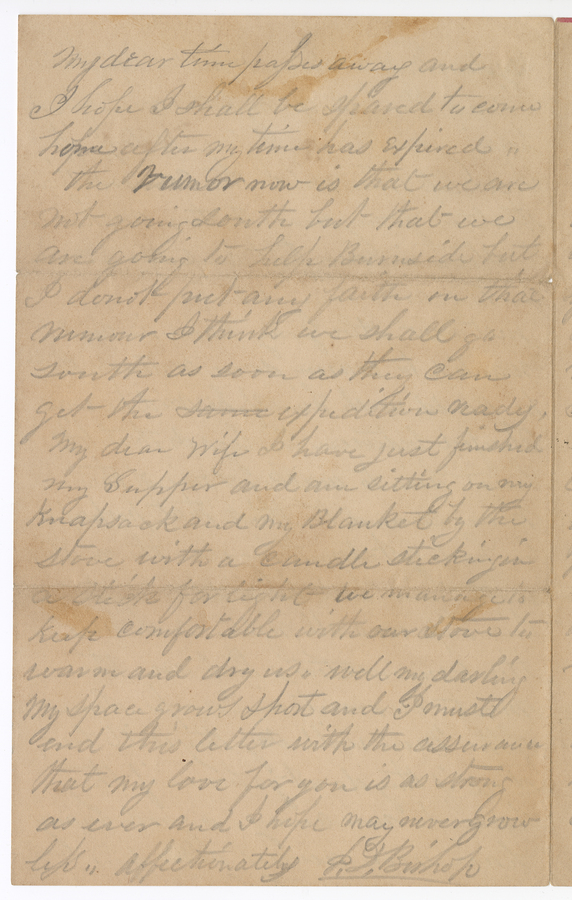 My dear time passes away and
I hope I shall be spared to come
home after my time has expired "
the rumor now is that we are
not going south but that we
are going to help Burnside but
I donot put any faith in that
rumour I think we shall go
south as soon as they can
get the same expedition ready.
My dear Wife I have just finished
my Supper and am sitting on my
Knapsack and my Blanket by the
stove with a candle sticking in
a stick for light we manage to
keep comfortable with our stove to
warm and dry us " well my darling
My space grows short and I must
end this letter with the assurance
that my love for you is as strong
as ever and I hope may never Grow
less " affectionately Bishop